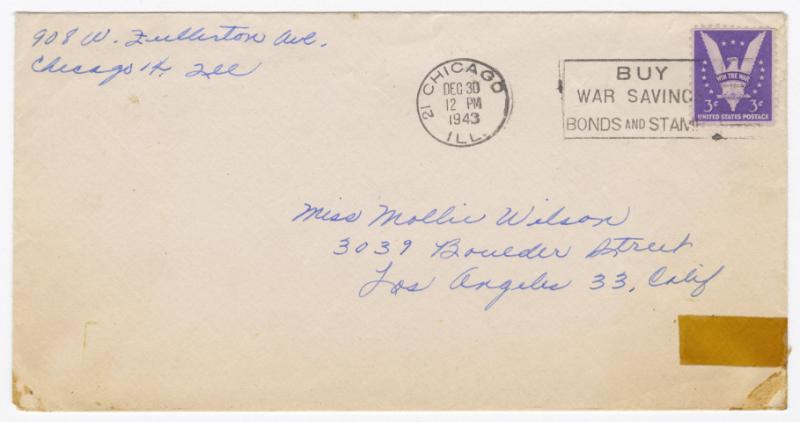 908 W. Fullerton Ave.
Chicago 14, Ill
CHICAGO 21
DEC 30
12 PM
1943
ILL.
BUY
WAR SAVINGS
BONDS AND STAM
WIN THE WAR
3¢ 3¢
UNITED STATES POSTAGE
Miss Mollie Wilson
3039 Boulder Street
Los Angeles 33, Calif